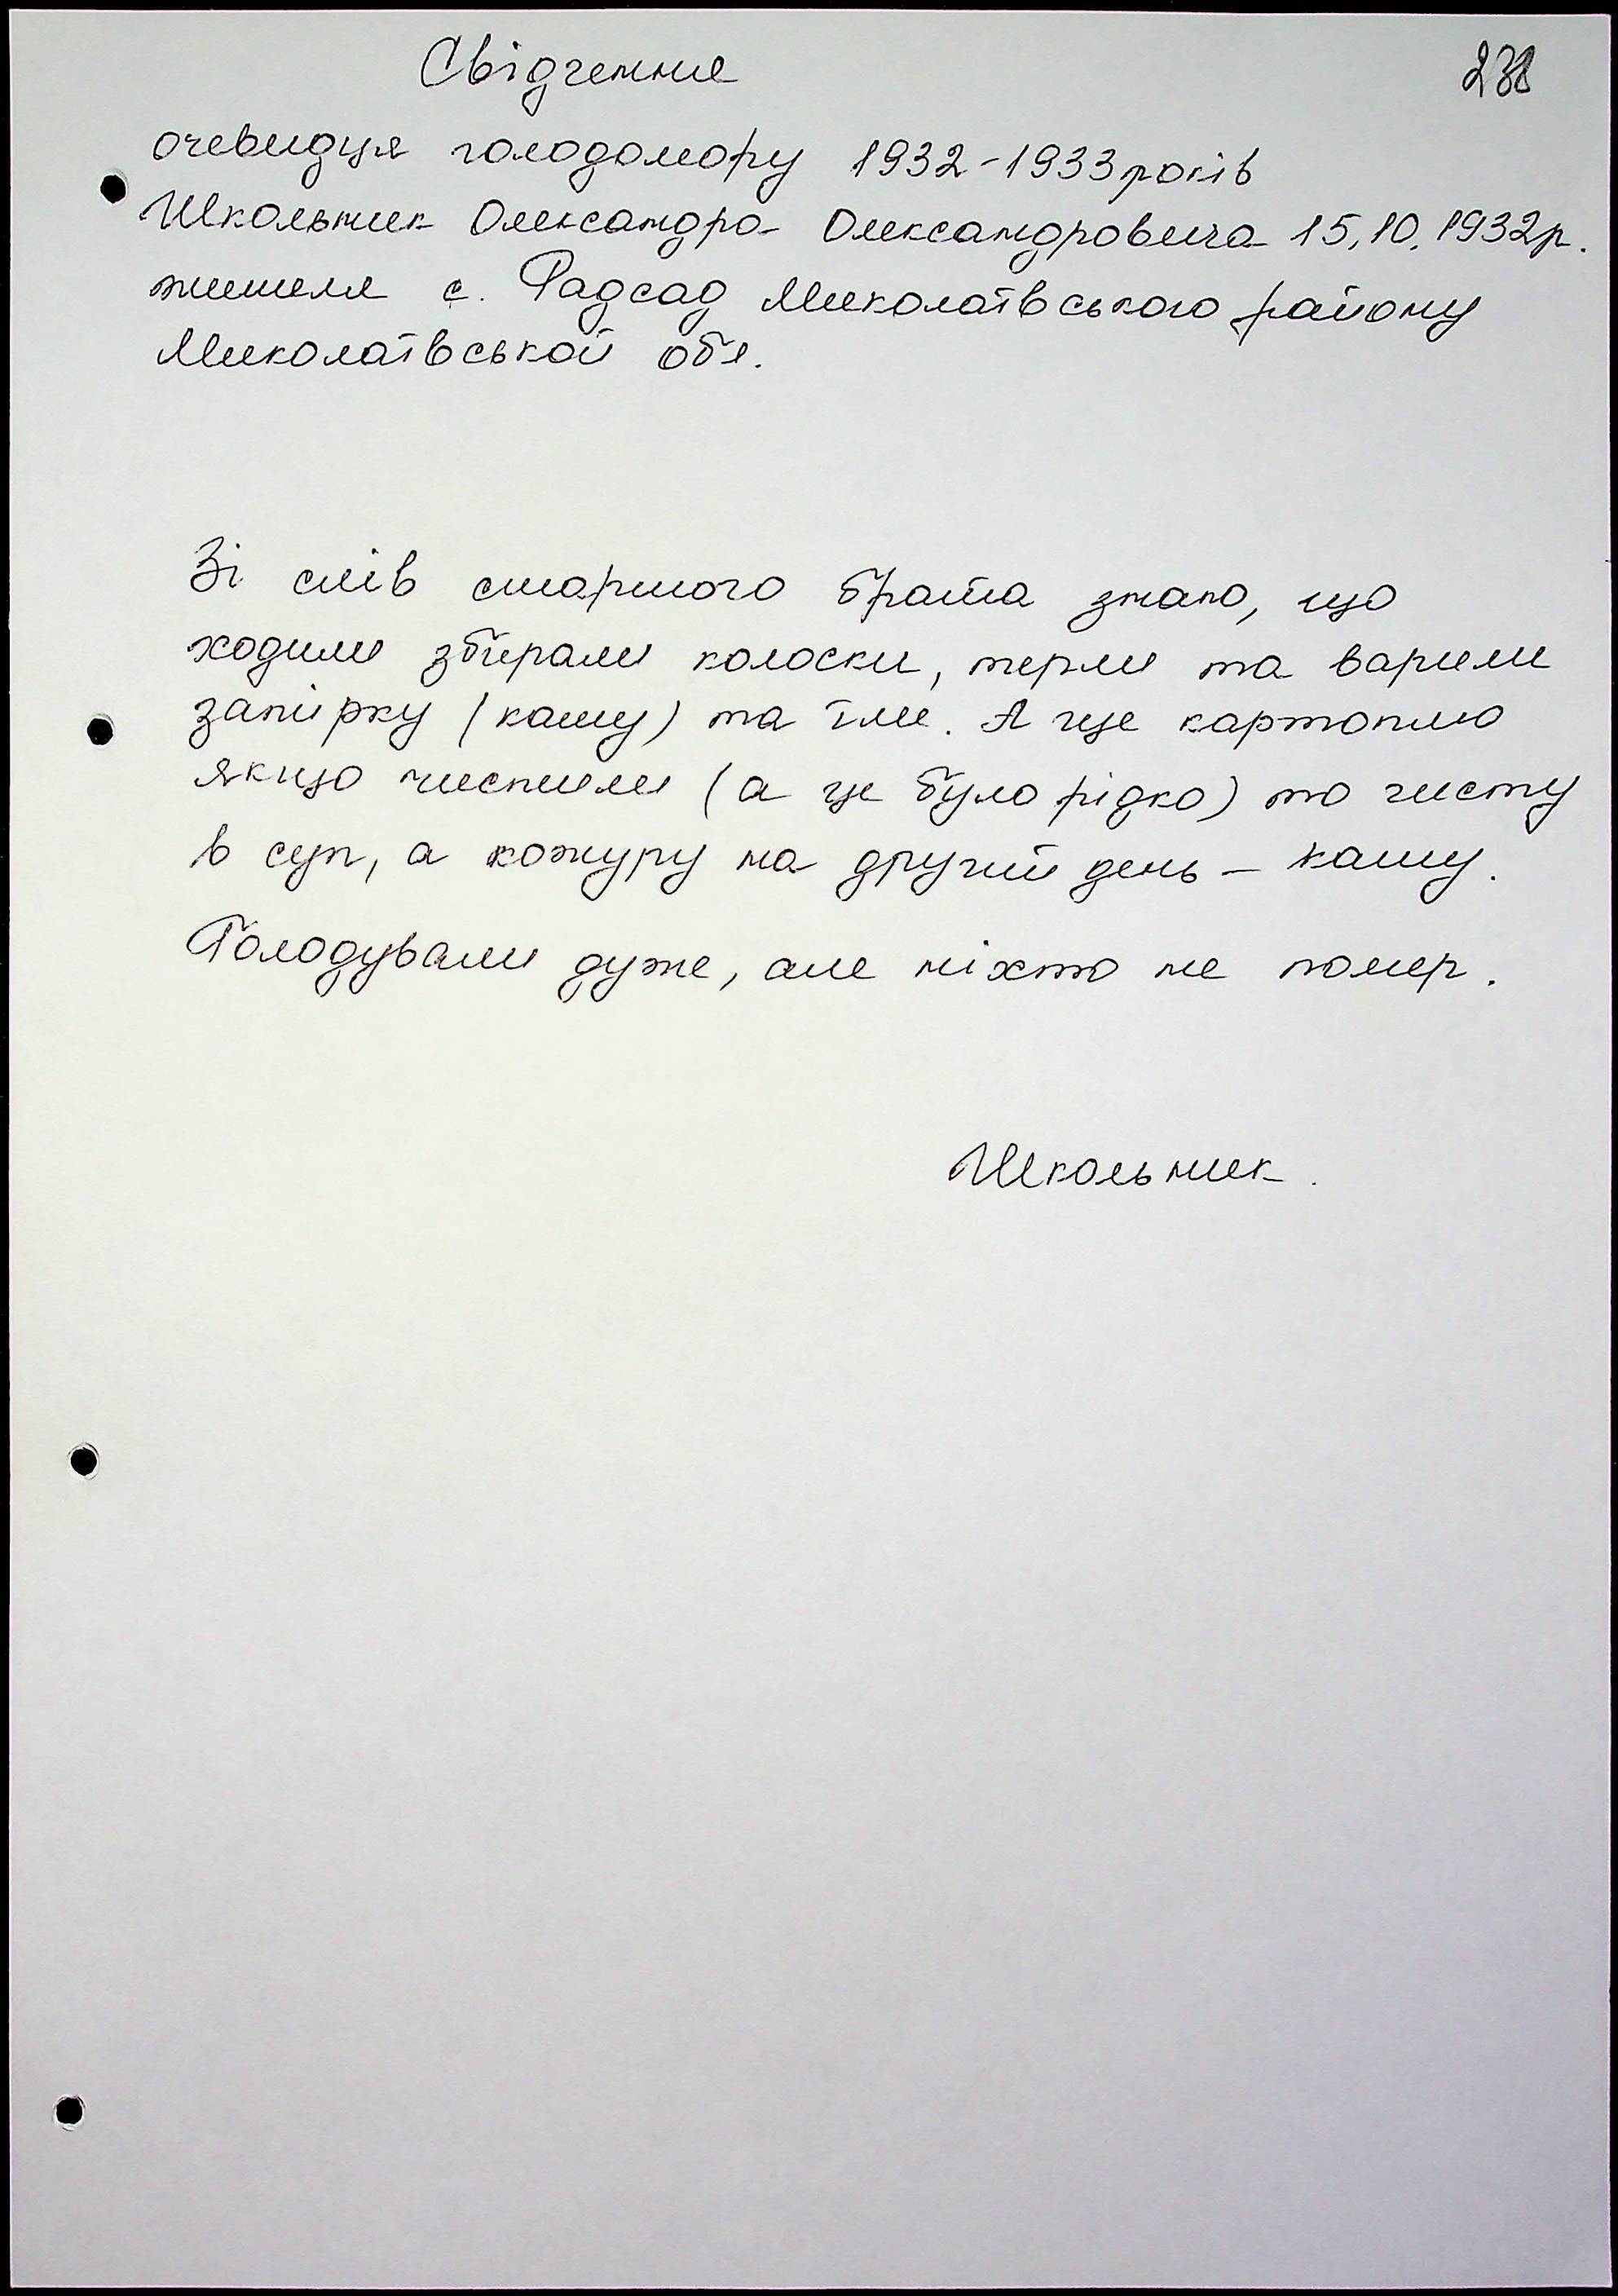 Свідчення
очевидця голодомору 1932-1933 років
Школьник Олександра Олександровича 15.10.1932р.
жителя с. Радсад Миколаївського району
Миколаївської обл.
Зі слів старшого брата знаю, що
ходили збирали колоски, терли та варили
запірку (кашу) та їли. А ще картоплю
якщо чистили (а це було рідко) то чисту
в суп, а кожуру на другий день - кашу.
Голодували дуже, але ніхто не помер.
Школьник.